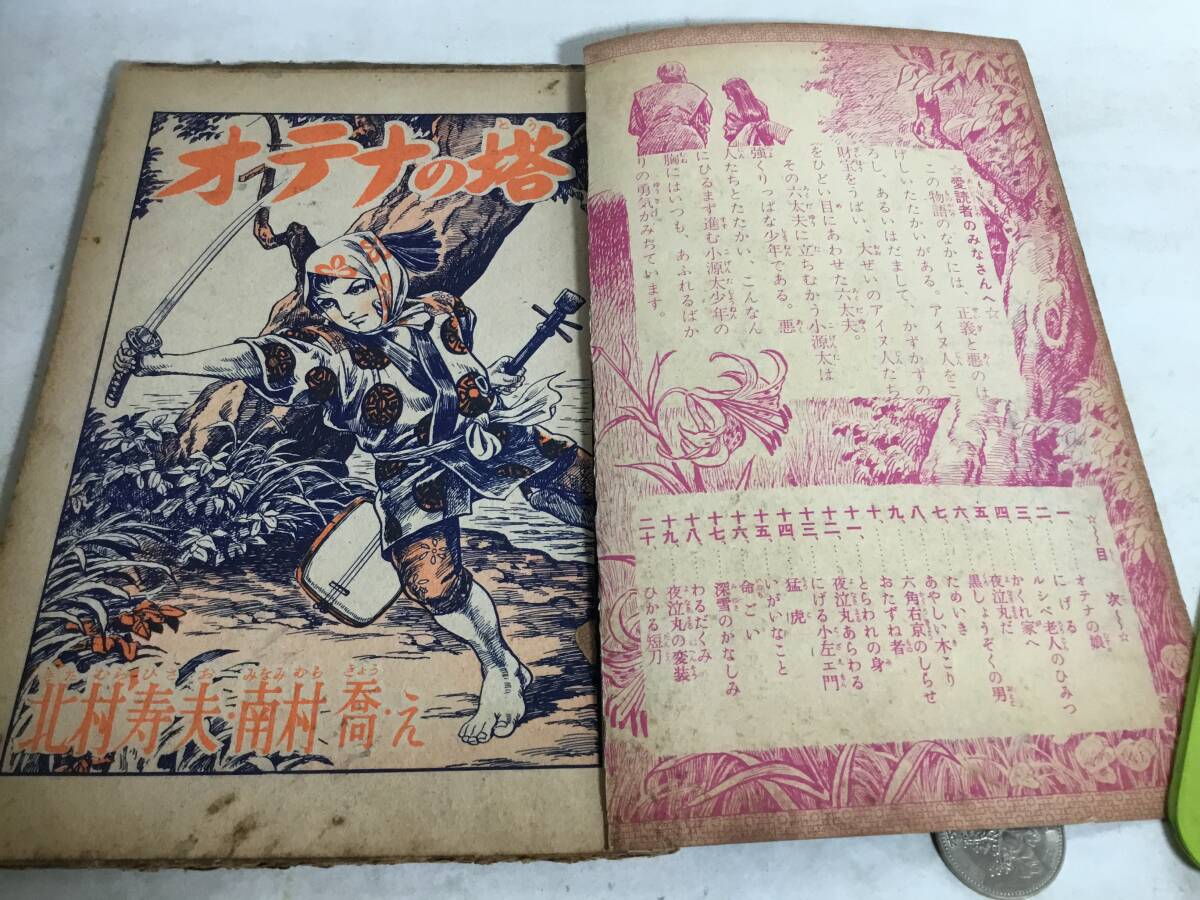 オテナの塔
北村寿夫・南村喬・え
☆愛読者のみなさんへ☆
この物語のなかには、正義と悪のは
げしいたたかいがある。アイヌ人をこ
ろし、あるいはだまして、かずかずの
財宝をうばい、大ぜいのアイヌ人たち
をひどい目にあわせた六太夫。
その六太夫に立ちむかう小源太は
強くりっぱな少年である。悪
人たちとたたかい、こんなん
にひるまず進む小源太少年の
胸にはいつも、あふれるばか
りの勇気がみちています。
☆〜目次〜☆
一、オテナの娘
二、にげる
三、ルシベ老人のひみつ
四、かくれ家へ
五、夜泣丸だ
六、黒しょうぞくの男
七、ためいき
八、あやしい木こり
九、六角右京のしらせ
十、おたずね者
十一、とらわれの身
十二、夜泣丸あらわる
十三、にげる小左エ門
十四、猛虎
十五、いがいなこと
十六、命ごい
十七、深雪のかなしみ
十八、わるだくみ
十九、夜泣丸の変装
二十、ひかる短刀